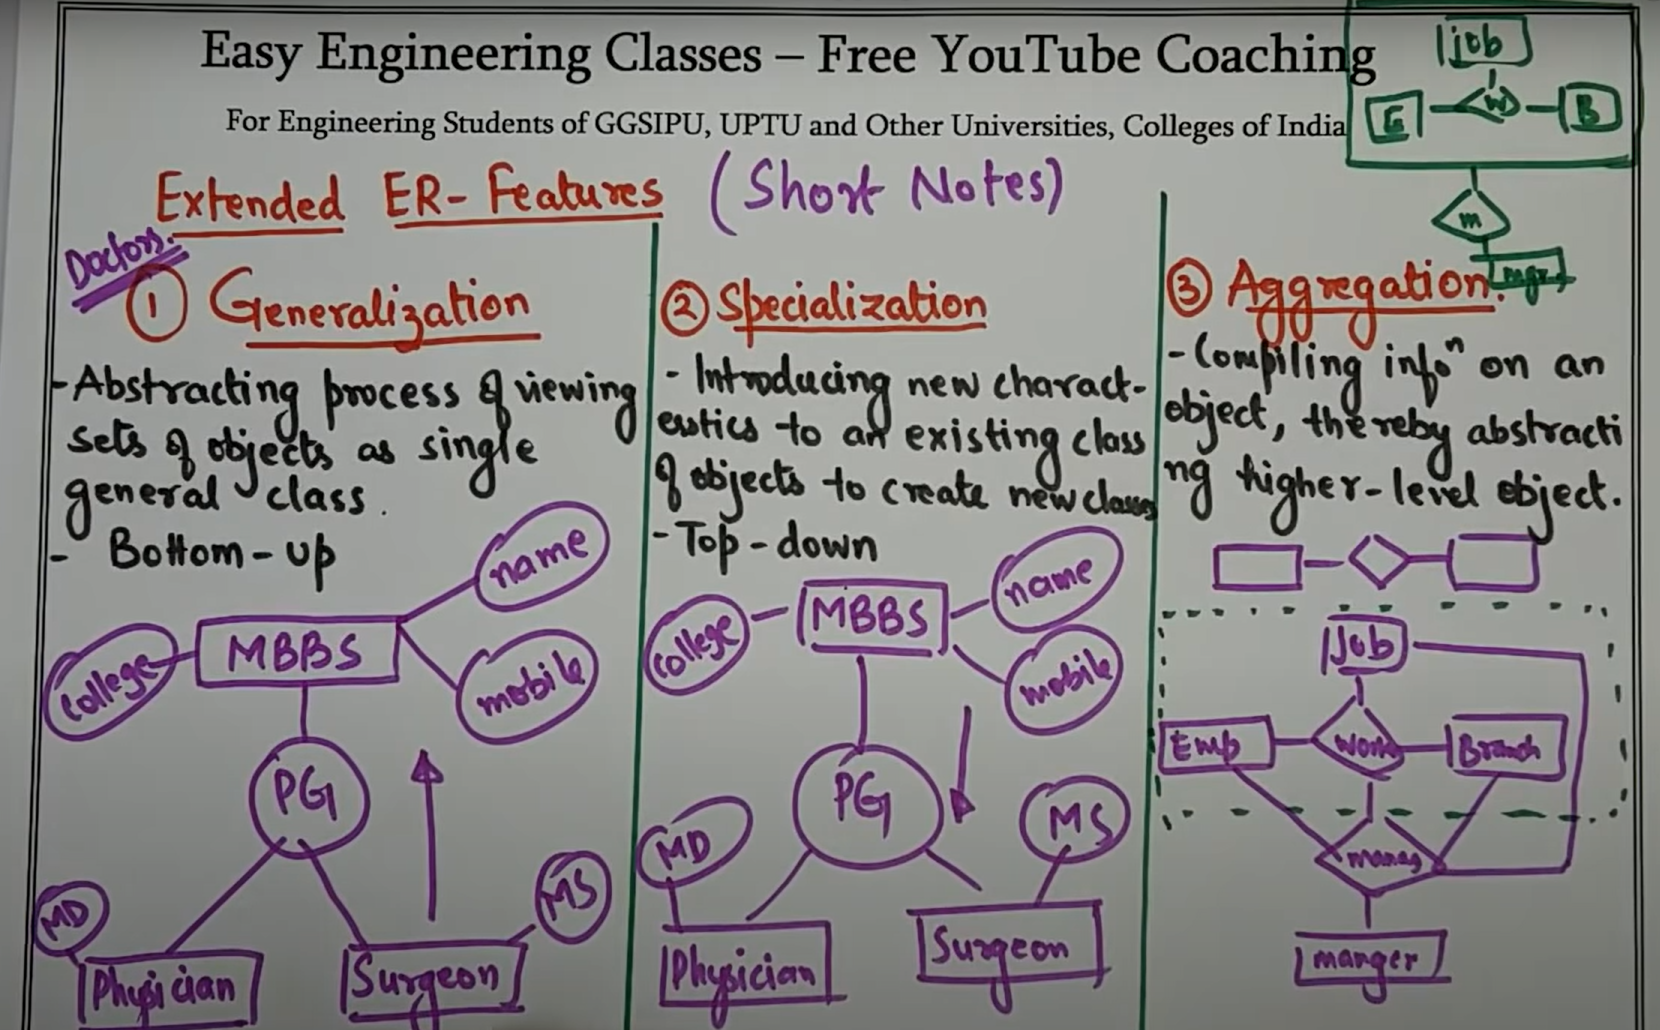 Easy Engineering Classes – Free YouTube Coaching
For Engineering Students of GGSIPU, UPTU and Other Universities, Colleges of India
Job
E
W
B
m
mgr
Extended ER- Features (Short Notes)
Doctors.
① Generalization
- Abstracting process of viewing
sets of objects as single
general class.
- Bottom-up
name
College
MBBS
mobile
PG
MD
MS
Physician
Surgeon
② Specialization
- Introducing new charact-
erstics to an existing class
of objects to create new class
- Top-down
name
College
MBBS
mobile
PG
MD
MS
Physician
Surgeon
③ Aggregation.
- Compiling infoⁿ on an
object, thereby abstracti
ng higher-level object.
Job
Emp
Work
Branch
manag
manger